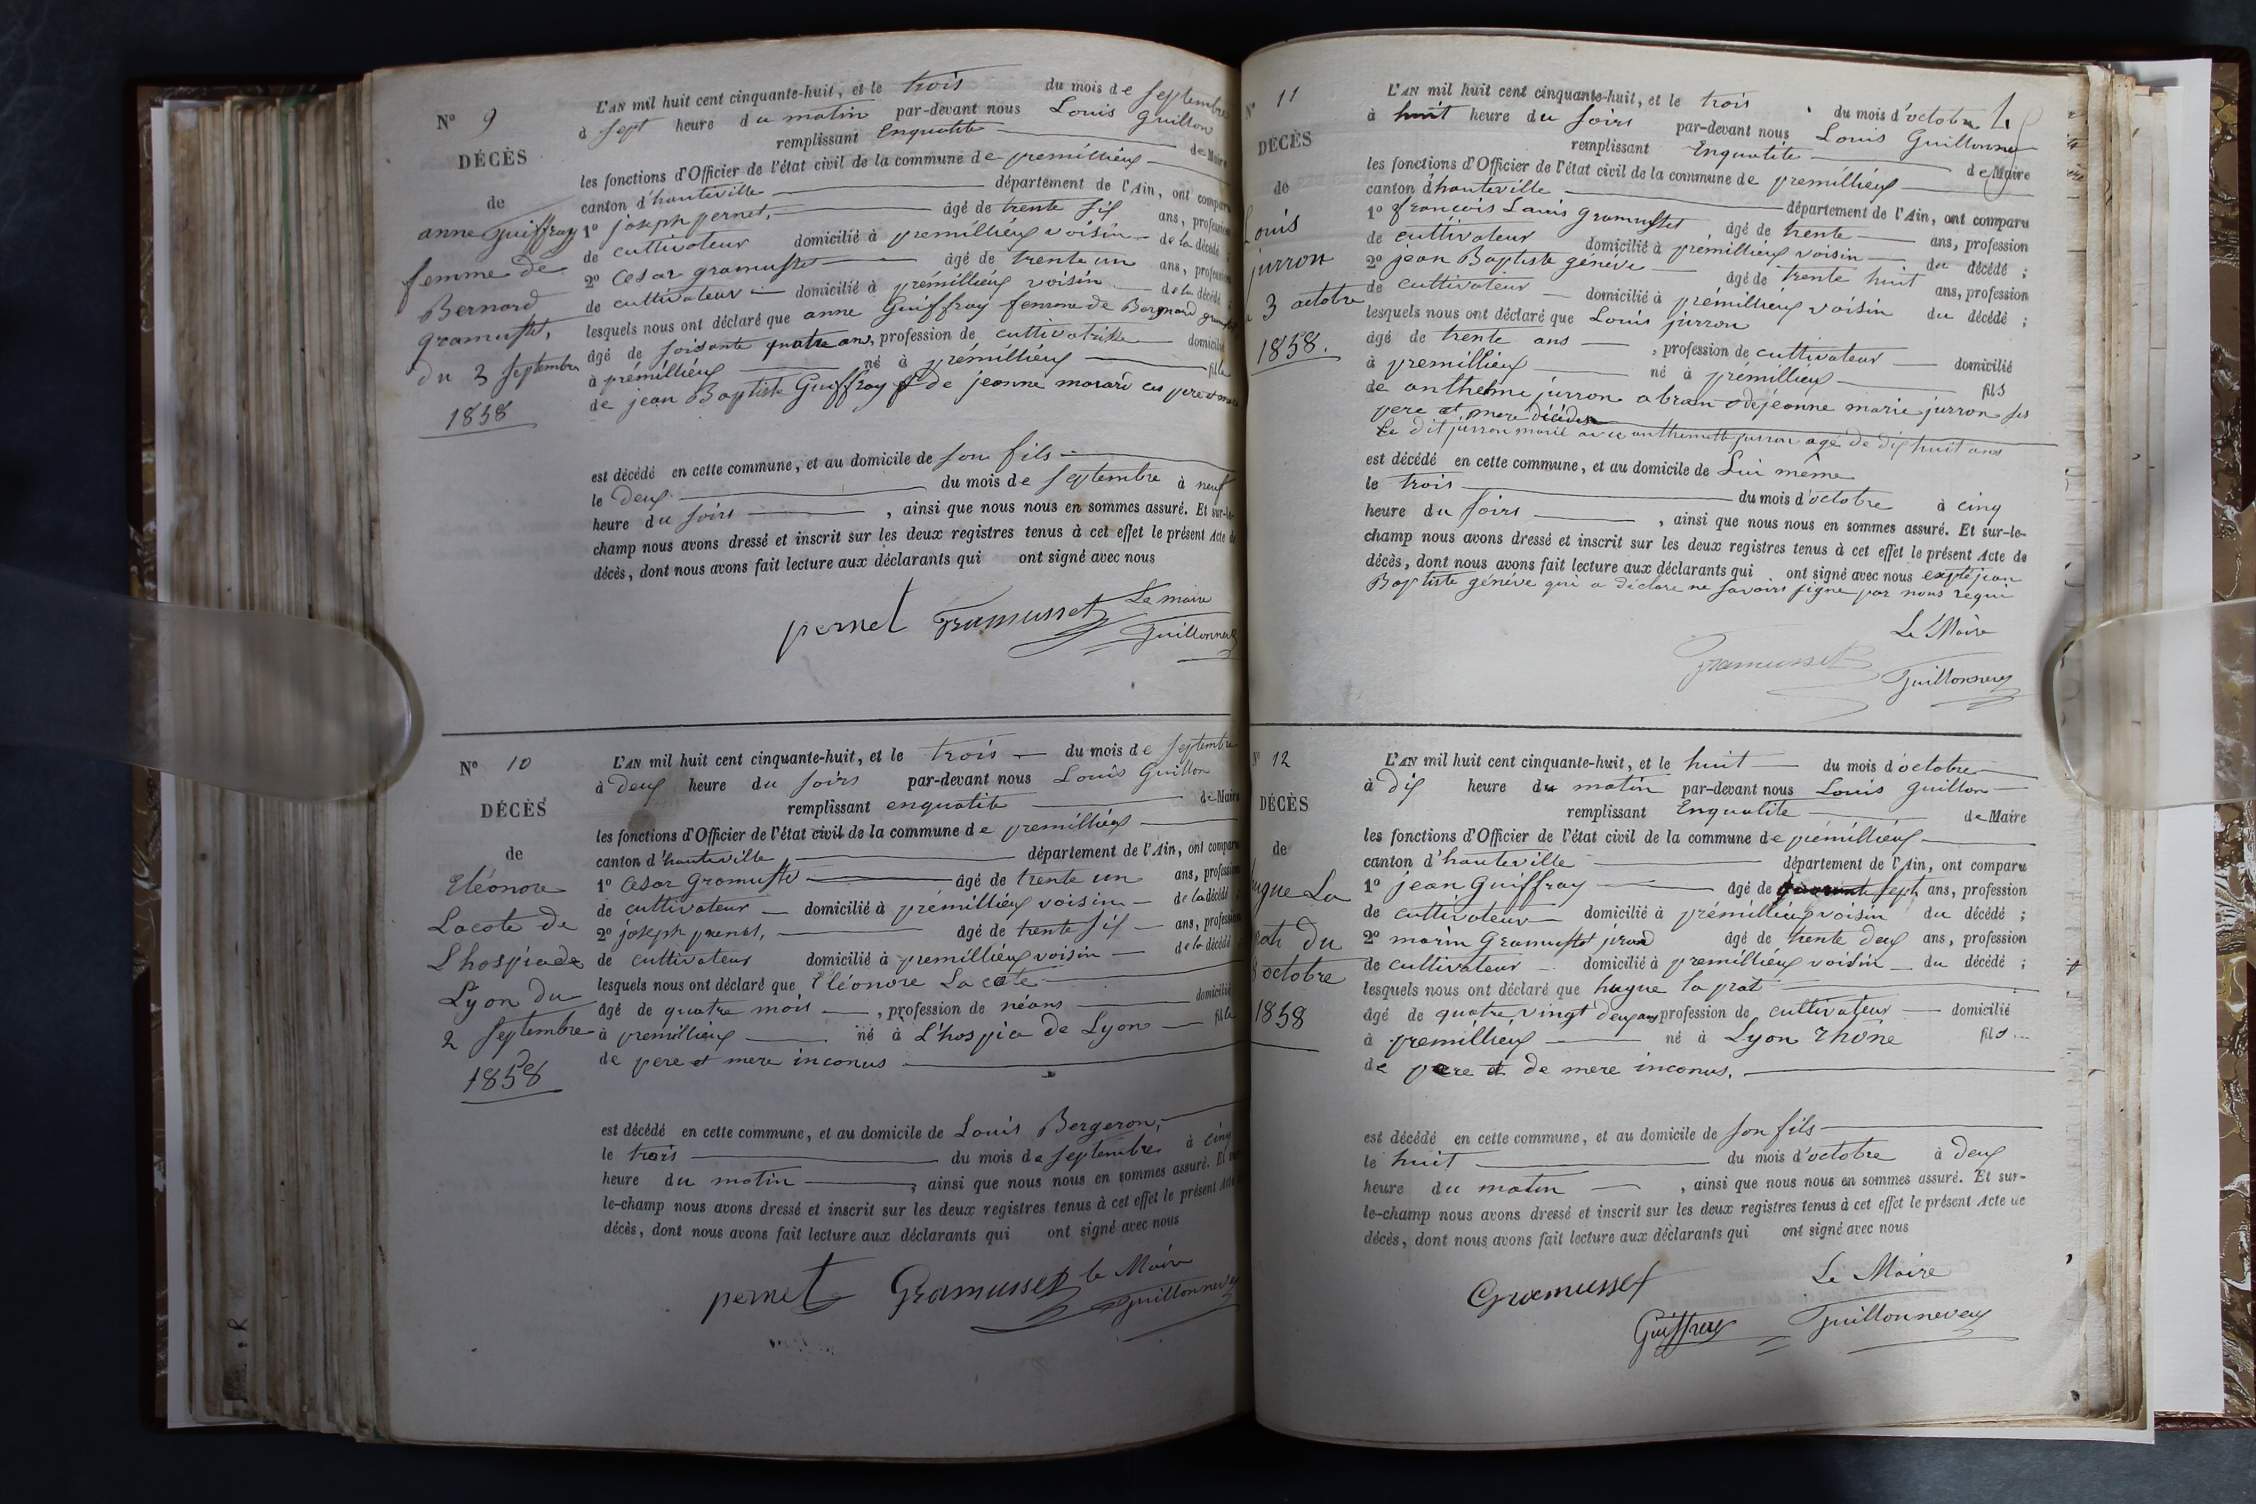 N° 9
DÉCÈS
de
anne Guiffray
femme de
Bernard
gramusset,
du 3 septembre
1858
L'AN mil huit cent cinquante-huit, et le trois du mois de septembre
à sept heure du matin par-devant nous Louis Guillon
remplissant Enqualité de Maire
les fonctions d'Officier de l'état civil de la commune de premillieux
canton d'hauteville département de l'Ain, ont comparu
1° joseph pernet, âgé de trente six ans, profession
de cultivateur domicilié à premillieux voisin de la décédé
2° Cesar gramusset âgé de trente un ans, profession
de cultivateur domicilié à prémillieux voisin de la décédé
lesquels nous ont déclaré que anne Guiffray femme de Bernard
âgé de soisante quatre ans, profession de cultivatrise domicilié
à prémillieux né à prémillieux fille
de jean Baptiste Guiffray de jeanne
est décédé en cette commune, et au domicile de son fils
le deux du mois de septembre à neuf
heure du soirs , ainsi que nous nous en sommes assuré. Et sur-le-
champ nous avons dressé et inscrit sur les deux registres tenus à cet effet le présent Acte de
décès, dont nous avons fait lecture aux déclarants qui ont signé avec nous
pernet Gramusset Le maire
Guillonneney
N° 10
DÉCÈS
de
Eléonore
Lacote de
L'hospia de
Lyon du
2 septembre
1858
L'AN mil huit cent cinquante-huit, et le trois du mois de septembre
à deux heure du soirs par-devant nous Louis Guillon
remplissant enqualité de Maire
les fonctions d'Officier de l'état civil de la commune de premilliéux
canton d'hauteville département de l'Ain, ont comparu
1° Cesar Gramusset âgé de trente un ans, profession
de cultivateur domicilié à prémillieux voisin de la décédé
2° joseph pernet, âgé de trente six ans, profession
de cultivateur domicilié à premillieux voisin de la décédé
lesquels nous ont déclaré que Eléonore Lacote
âgé de quatre mois , profession de néans domicilié
à premillieux né à L'hospia de Lyon fille
de pere et mere inconus
est décédé en cette commune, et au domicile de Louis Bergeron,
le trois du mois de septembre à cinq
heure du matin , ainsi que nous nous en sommes assuré. Et sur-
le-champ nous avons dressé et inscrit sur les deux registres tenus à cet effet le présent Acte
décès, dont nous avons fait lecture aux déclarants qui ont signé avec nous
pernet Gramusset le Maire
Guillonneney
N° 11
DÉCÈS
de
Louis
jurron
3 octobre
1858.
L'AN mil huit cent cinquante-huit, et le trois du mois d'octobre
à huit heure du soirs par-devant nous Louis Guillonney
remplissant Enqualité de Maire
les fonctions d'Officier de l'état civil de la commune de premilliéux
canton d'hauteville département de l'Ain, ont comparu
1° francois Louis gramusset âgé de trente ans, profession
de cultivateur domicilié à prémillieux voisin du décédé ;
2° jean Baptiste généve âgé de trente huit ans, profession
de cultivateur domicilié à prémillieux voisin du décédé ;
lesquels nous ont déclaré que Louis jurron
âgé de trente ans , profession de cultivateur domicilié
à premillieux né à prémillieux fils
de anthelme jurron abram de jeanne marie jurron ses
pere et mere décédés
Le dit jurron marié avec anthemette jurron agé de dix huit ans
est décédé en cette commune, et au domicile de Lui même
le trois du mois d'octobre à cinq
heure du soirs , ainsi que nous nous en sommes assuré. Et sur-le-
champ nous avons dressé et inscrit sur les deux registres tenus à cet effet le présent Acte de
décès, dont nous avons fait lecture aux déclarants qui ont signé avec nous expté jean
Baptiste généve qui a déclare ne savoirs signe par nous requi
Le Maire
Gramusset Guillonneney
N° 12
DÉCÈS
de
hugue La
prat du
8 octobre
1858
L'AN mil huit cent cinquante-huit, et le huit du mois d'octobre
à dix heure du matin par-devant nous Louis Guillon
remplissant Enqualité de Maire
les fonctions d'Officier de l'état civil de la commune de prémillieux
canton d'hauteville département de l'Ain, ont comparu
1° jean Guiffray âgé de quarante sept ans, profession
de cultivateur domicilié à prémillieux voisin du décédé ;
2° marin Gramusset âgé de trente deux ans, profession
de cultivateur domicilié à premillieux voisin du décédé ;
lesquels nous ont déclaré que hugue la prat
âgé de quatre vingt deux ans profession de cultivateur domicilié
à premillieux né à Lyon Rhône fils
de pere et de mere inconus.
est décédé en cette commune, et au domicile de son fils
le huit du mois d'octobre à deux
heure du matin , ainsi que nous nous en sommes assuré. Et sur-
le-champ nous avons dressé et inscrit sur les deux registres tenus à cet effet le présent Acte de
décès, dont nous avons fait lecture aux déclarants qui ont signé avec nous
Gramusset Le Maire
Guiffrey Guillonneney